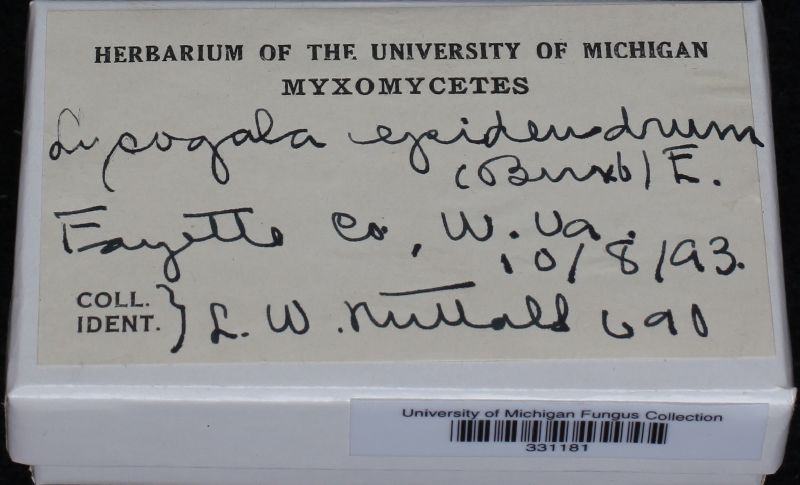 HERBARIUM OF THE UNIVERSITY OF MICHIGAN
MYXOMYCETES
Lycogala epidendrum
(Buxb) E.
Fayette Co., W. Va.
10/8/93.
COLL.
IDENT. } L. W. Nuttall 690
University of Michigan Fungus Collection
331181